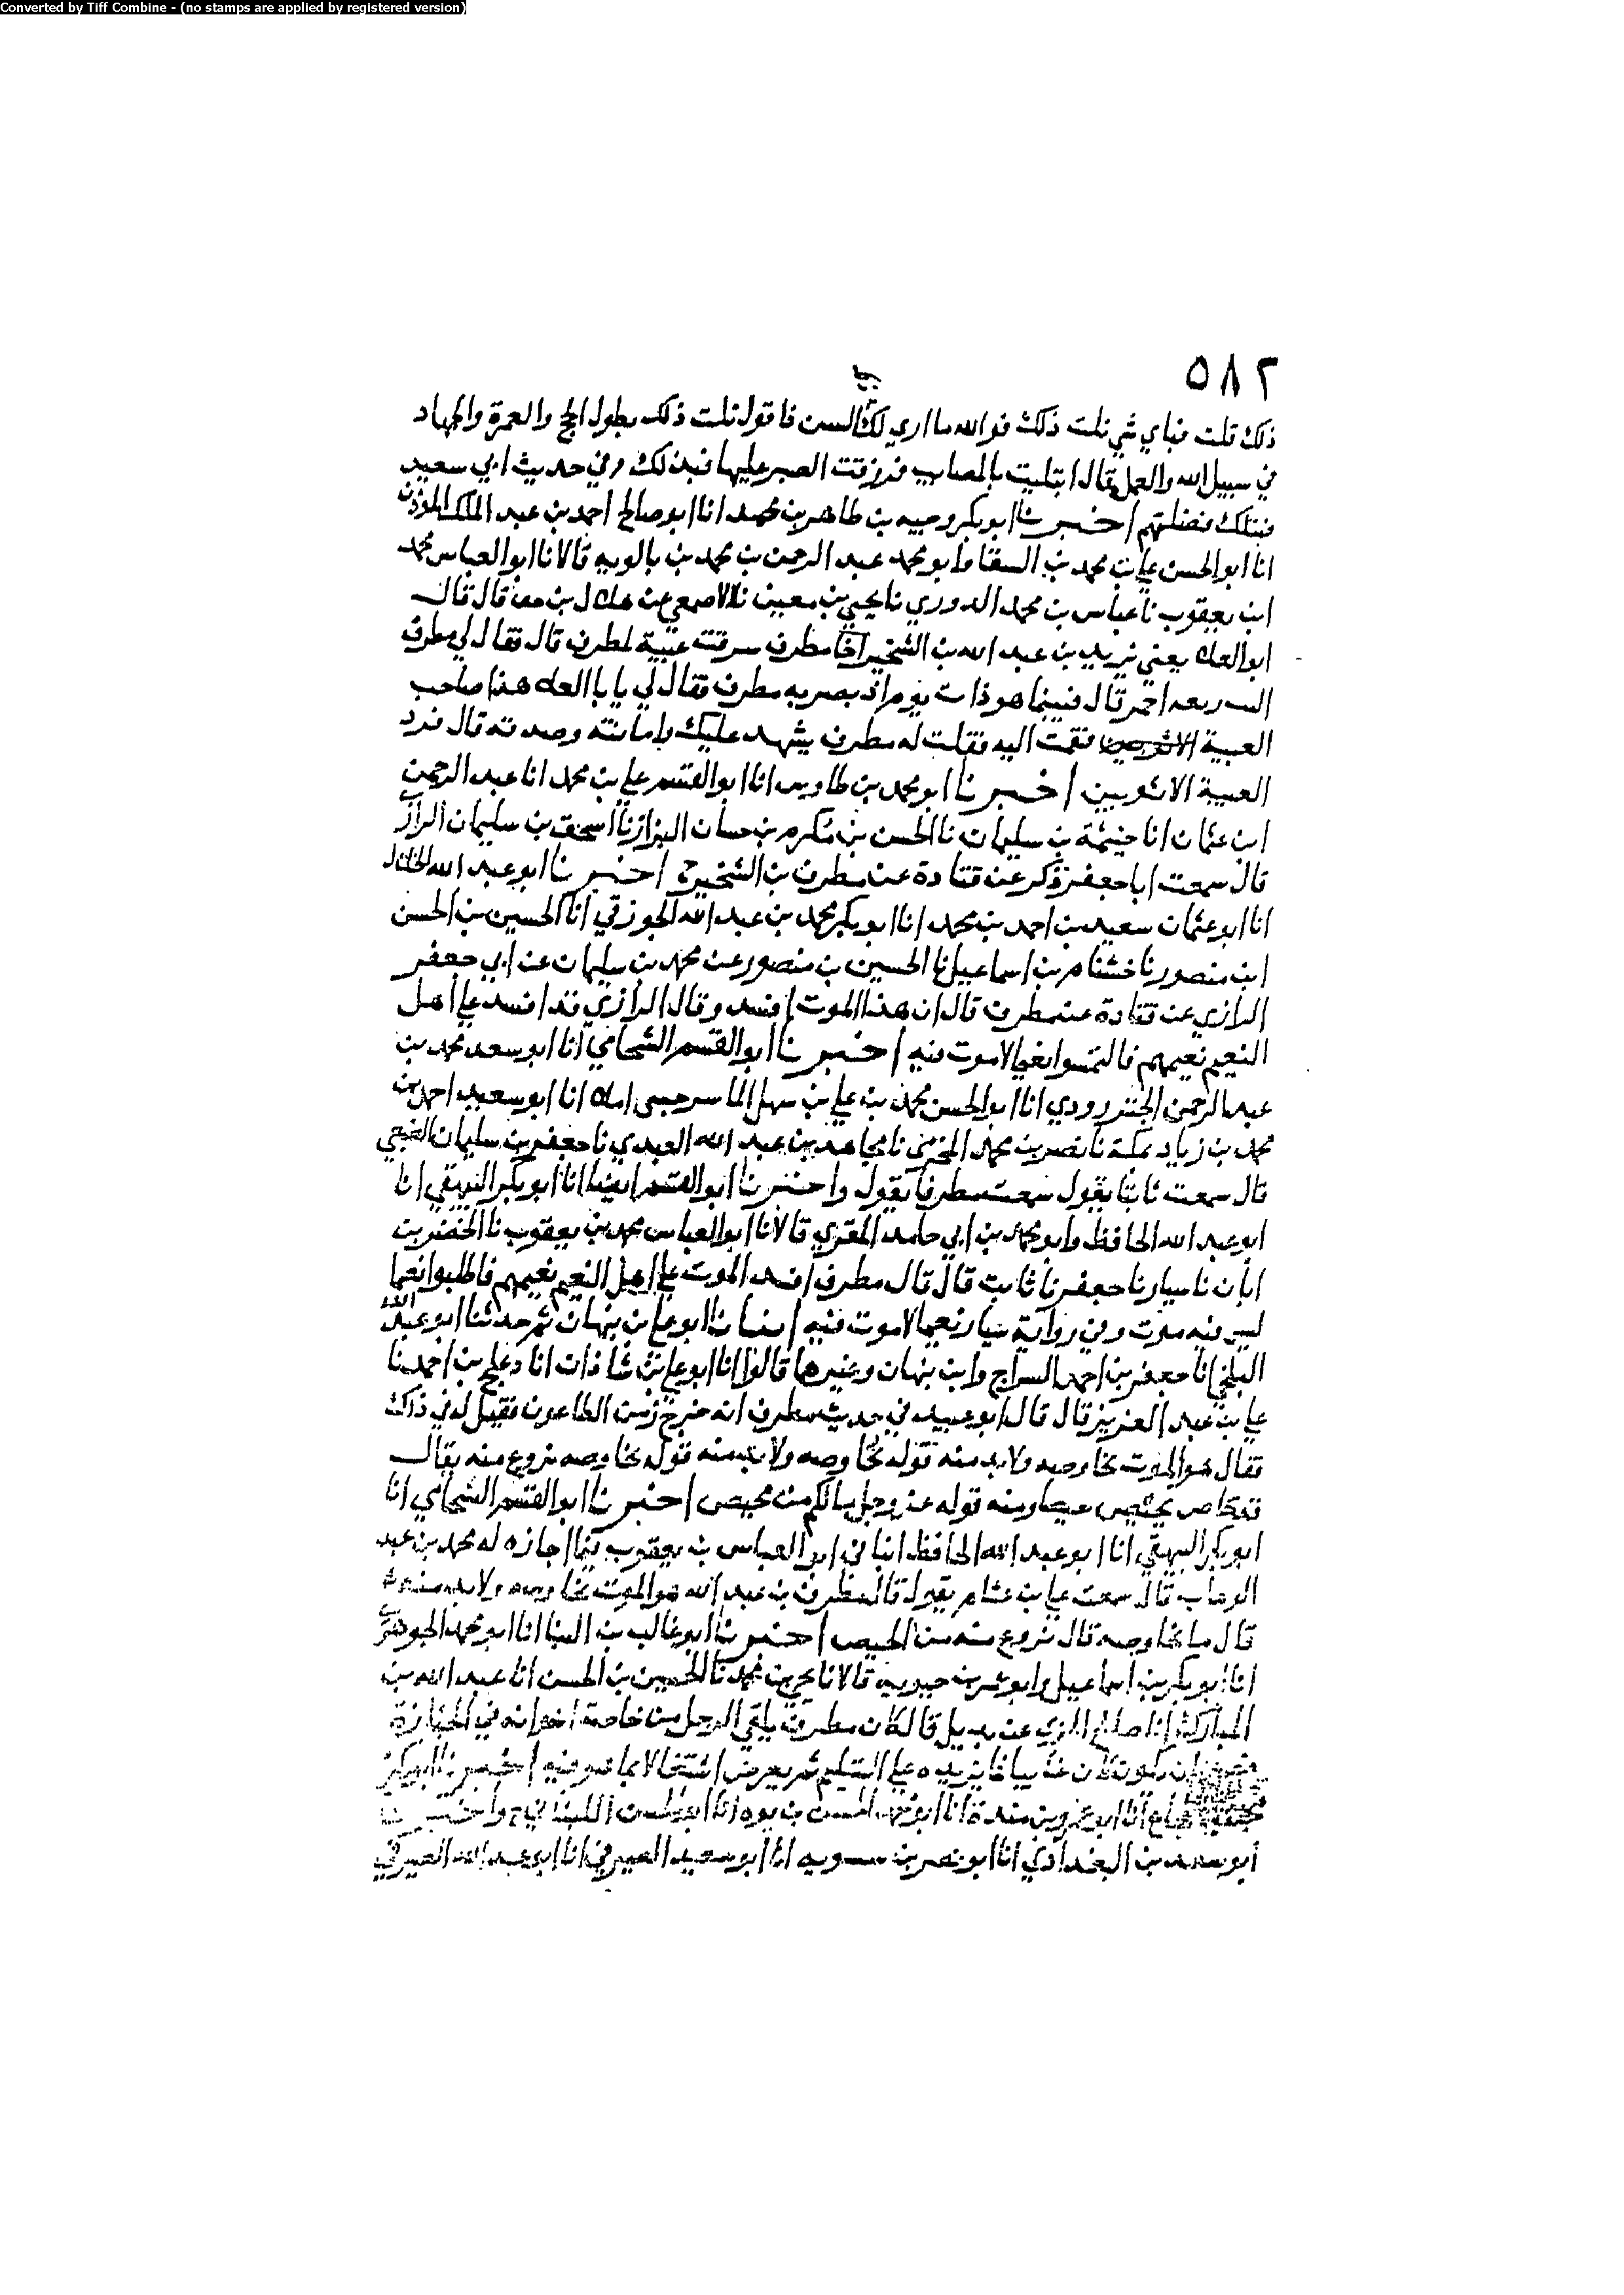 Converted by Tiff Combine - (no stamps are applied by registered version)
٥٨٢
ذلك قلت فباي شي نلت ذلك فوالله ما اري لك السن فاقول نلت ذلك بطول الحج والعمرة والجهاد
في سبيل الله والعمل قال ابتليت بالمصايب فرزقت الصبر عليها فبذلك وفي حديث ابي سعيد
فبتلك فضلتهم اخبرنا ابو بكر وجيه بن طاهر بن محمد انا ابو صالح احمد بن عبد الملك المؤذن
انا ابو الحسن علي بن محمد بن السقا وابو محمد عبد الرحمن بن محمد بن بالويه قالا نا ابو العباس محمد
ابن يعقوب نا عباس بن محمد الدوري نا يحيى بن معين نا الاصمعي عن هلال بن حق قال قال
ابو العلا يعني يزيد بن عبد الله بن الشخير اخا مطرف سرقت عيبة لمطرف قال فقال لي مطرف
احمر قال فبينما هو ذات يوم اذ بصر به مطرف فقال لي يا با العلا هذا صاحب
العيبة فقمت اليه فقلت له مطرف يشهد عليك بامانته وصدقه قال فرد
العيبة الاثوبين اخبرنا ابو محمد بن طاوس انا ابو القسم علي بن محمد انا عبد الرحمن
ابن عثمان انا خيثمة بن سليمان نا الحسن بن مكرم بن حسان البزاز نا اسحق بن سليمان الرازي
قال سمعت ابا جعفر ذكر عن قتادة عن مطرف بن الشخير ح اخبرنا ابو عبد الله الخلال
انا ابو عثمان سعيد بن احمد بن محمد انا ابو بكر محمد بن عبد الله الجوزقي انا الحسين بن الحسن
ابن منصور نا خشنام بن اسماعيل نا الحسين بن منصور عن محمد بن سليمان عن ابي جعفر
الرازي عن قتادة عن مطرف قال ان هذا الموت افسد وقال الرازي قد افسد علي اهل
النعيم نعيمهم فالتمسوا نعيما لا موت فيه اخبرنا ابو القسم الشحامي انا ابو سعد محمد بن
عبد الرحمن الجنزرودي انا ابو الحسن محمد بن علي بن سهل الماسرجسي املا انا ابو سعيد احمد بن
محمد بن زياد بمكة نا نصر بن محمد نا مجاهد بن عبد الله العبدي نا جعفر بن سليمان الضبعي
قال سمعت ثابتا يقول سمعت مطرفا يقول واخبرنا ابو القسم ايضا انا ابو بكر البيهقي انا
ابو عبد الله الحافظ وابو محمد بن ابي حامد المقري قالا نا ابو العباس محمد بن يعقوب نا الخضر بن
ابان نا سيار نا جعفر نا ثابت قال قال مطرف افسد الموت علي اهل النعيم نعيمهم فاطلبوا نعيما
ليس فيه موت وفي رواية سيار نعيما لا موت فيه انبانا ابو علي بن نبهان ثم حدثنا ابو عبد الله
البلخي انا جعفر بن احمد السراج وابن نبهان وغيرهما قالوا انا ابو علي بن شاذان انا دعلج بن احمد نا
علي بن عبد العزيز قال قال ابو عبيد في حديث مطرف انه خرج زمن الطاعون فقيل له في ذلك
فقال هو الموت نحاوصه ولا بد منه قوله نحاوصه ولا بد منه قوله نحاوصه نروع منه يقال
ومنه قوله عز وجل ما لكم من محيص اخبرنا ابو القسم الشحامي انا
ابو بكر البيهقي انا ابو عبد الله الحافظ انباني ابو العباس بن يعقوب فيما اجازه له محمد بن عبد
الوهاب قال سمعت علي بن عثام يقول قال مطرف بن عبد الله هو الموت نحاوصه ولا بد منه
قال ما نحاوصه قال نروع منه من المحيص اخبرنا ابو غالب بن البنا انا ابو محمد الجوهري
انا ابو بكر بن اسماعيل وابو عمر بن حيويه قالا نا يحيى بن محمد نا الحسين بن الحسن انا عبد الله بن
المبارك انا صالح المري عن بديل قال كان مطرف يلقي الرجل من خاصة اخوانه في الجنازة
ان يكون كان غايبا فما يزيده علي التسليم ثم يعرض اشتغالا بما هو فيه اخبرنا ابو بكر
شجاع انا ابو عمرو بن مندة انا ابو محمد الحسن بن يوه انا ابو الحسن اللبناني ح واخبرنا
ابو سعد بن البغدادي انا ابو نصر بن سسويه انا ابو سعيد الصيرفي انا ابو عبد الله الصيرفي